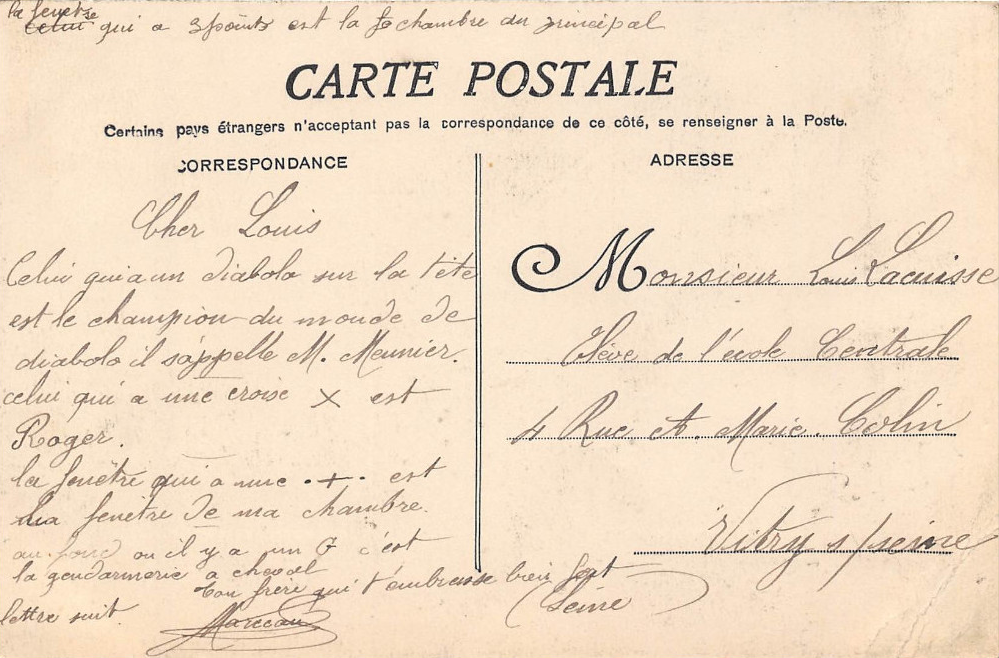 la fenetre
celui qui a 3 points est la fe chambre du principal
CARTE POSTALE
Certains pays étrangers n'acceptant pas la correspondance de ce côté, se renseigner à la Poste.
CORRESPONDANCE
Cher Louis
Celui qui a un diabolo sur la tête
est le champion du monde de
diabolo il s'appelle M. Meunier.
celui qui a une croise × est
Roger.
la fenêtre qui a une . + . est
la fenetre de ma chambre.
au fond ou il y a un G c'est
la gendarmerie a cheval
ton frère qui t'embrasse bien fort
lettre suit.
Marceau
ADRESSE
Monsieur Louis Lacuisse
Elève de l'école Centrale
4 Rue et. Marie. Colin
Vitry s/seine
(Seine)